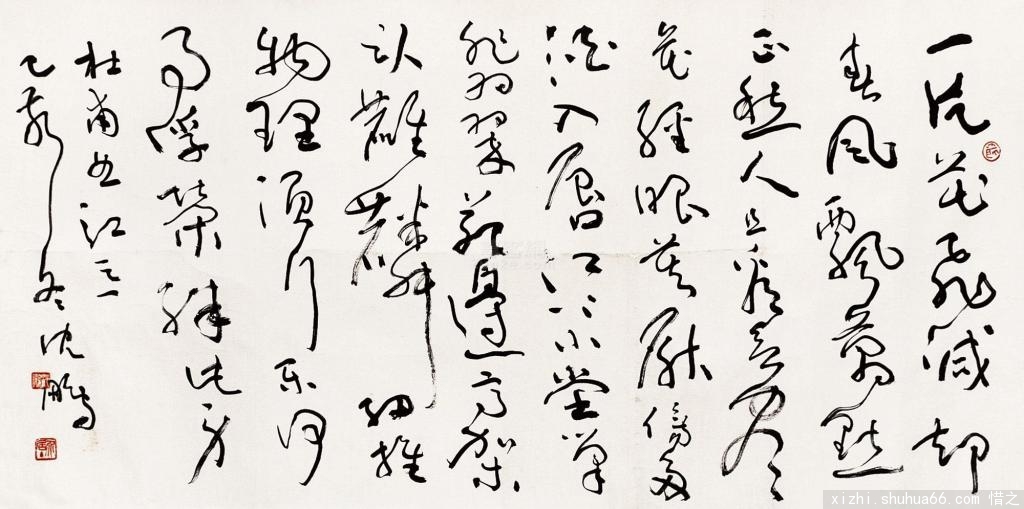 一片花飛減却
春風飄萬點
正愁人且看欲盡
花經眼莫厭傷多
酒入唇江上小堂巢
翡翠苑邊高冢
卧麒麟細推
物理須行樂何
用浮榮絆此身
杜甫曲江之一
乙亥冬沈鵬
xizhi.shuhua66.com 惜之